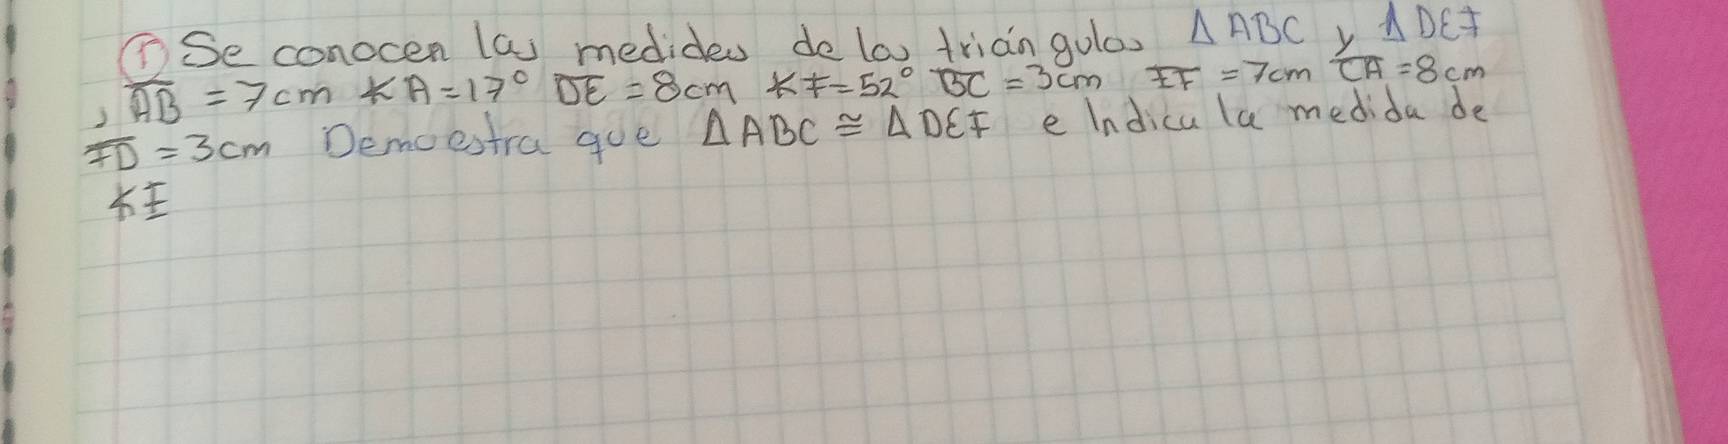 ① Se conocen las medidas de los triángulos Δ ABC y Δ DEF
, AB = 7cm ∢A=17° DE = 8cm ∢F=52° BC = 3cm EF = 7cm CA = 8cm
FD = 3cm Demuestra que ΔABC ≅ ΔDEF e Indica la medida de
∢E